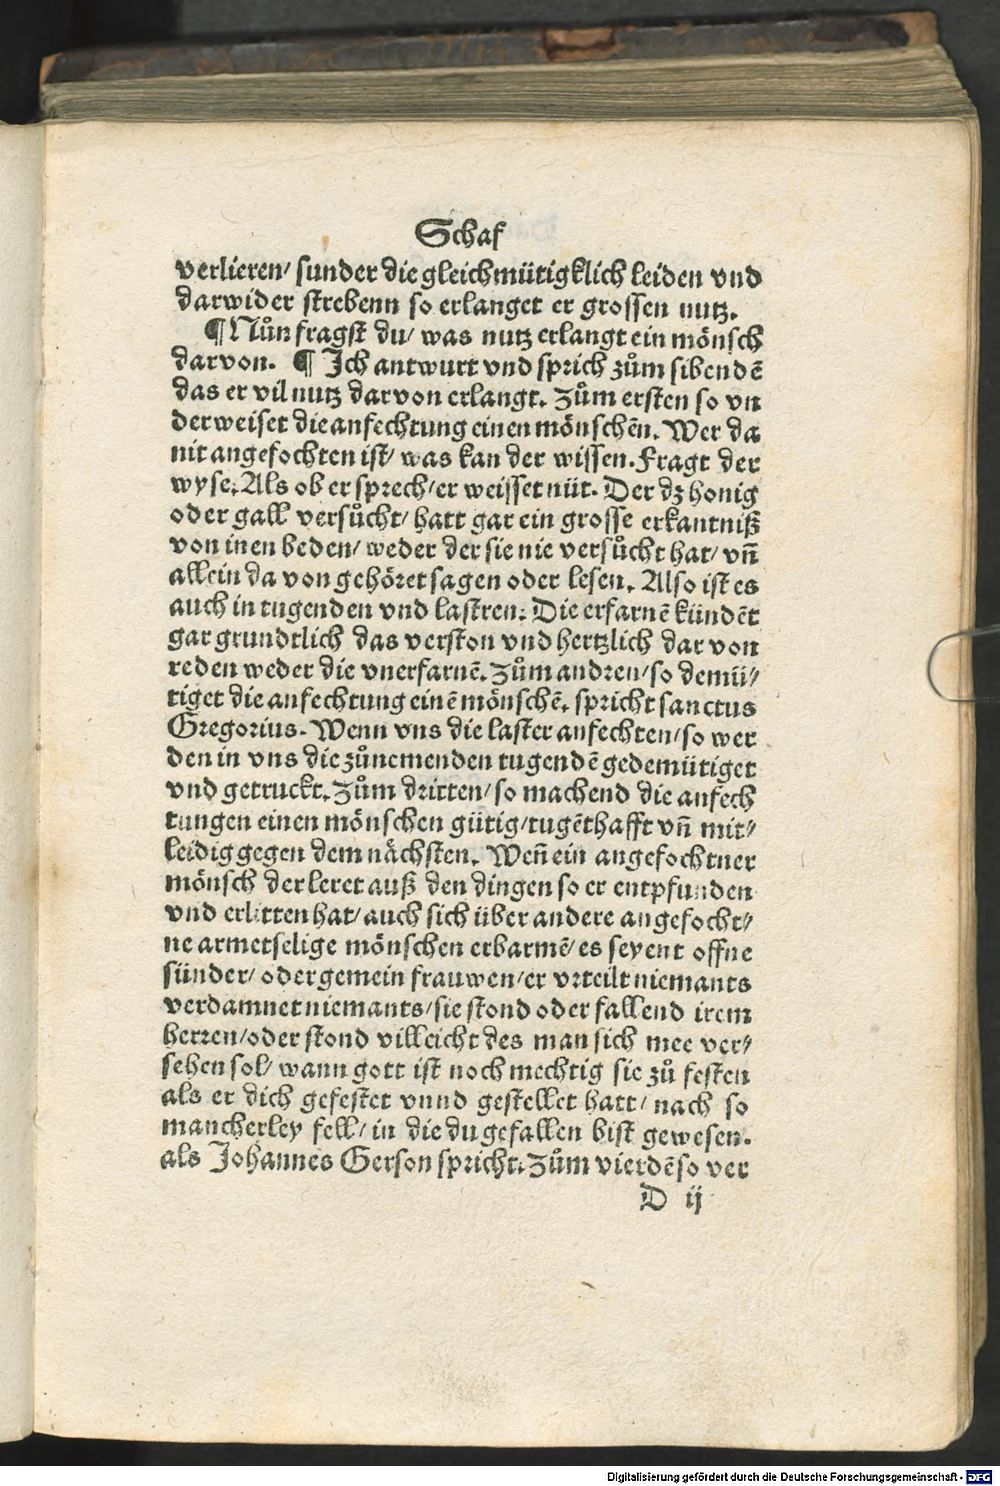 Schaf
verlieren/ sunder die gleichmütigklich leiden vnd
darwider strebenn so erlanget er grossen nutz.
¶ Nůn fragst du/ was nutz erlangt ein mönsch
darvon. ¶ Ich antwurt vnd sprich zům sibendē
das er vil nutz darvon erlangt. Zům ersten so vn
derweiset die anfechtung einen mönschēn. Wer da
nit angefochten ist/ was kan der wissen. Fragt der
wyse. Als ob er sprech/ er weisset nüt. Der dz honig
oder gall versůcht/ hatt gar ein grosse erkantniß
von inen beden/ weder der sie nie versůcht hat/ vn̄
allein da von gehöret sagen oder lesen. Also ist es
auch in tugenden vnd lastren. Die erfarnē kündēt
gar grundtlich das verston vnd hertzlich dar von
reden weder die vnerfarnē. Zům andren/ so demü/
tiget die anfechtung einē mönschē. spricht sanctus
Gregorius. Wenn vns die laster anfechten/ so wer
den in vns die zůnemenden tugendē gedemütiget
vnd getruckt. Zům dritten/ so machend die anfech
tungen einen mönschen gütig/ tugēthafft vn̄ mit/
leidig gegen dem nächsten. Wen̄ ein angefochtner
mönsch der leret auß den dingen so er entpfunden
vnd erlitten hat/ auch sich über andere angefocht/
ne armetselige mönschen erbarmē/ es seyent offne
sünder/ oder gemein frauwen/ er vrteilt niemants
verdamnet niemants/ sie stond oder fallend irem
herren/ oder stond villeicht des man sich mee ver/
sehen sol/ wann gott ist noch mechtig sie zů festen
als er dich gefestet vnnd gestellet hatt/ nach so
mancherley fell/ in die du gefallen bist gewesen.
als Johannes Gerson spricht. Zům vierdē so ver
D ij
Digitalisierung gefördert durch die Deutsche Forschungsgemeinschaft - DFG